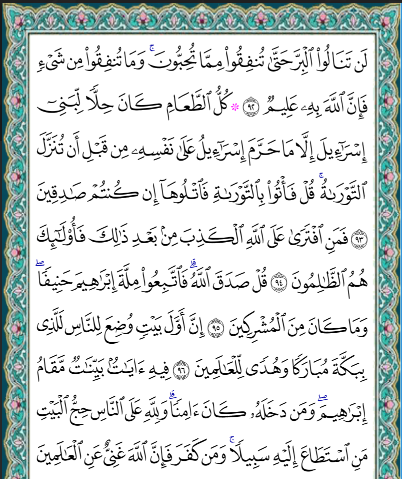 لَن تَنَالُوا۟ ٱلْبِرَّ حَتَّىٰ تُنفِقُوا۟ مِمَّا تُحِبُّونَ ۚ وَمَا تُنفِقُوا۟ مِن شَىْءٍ
فَإِنَّ ٱللَّهَ بِهِۦ عَلِيمٌ ﴿٩٢﴾ ۞ كُلُّ ٱلطَّعَامِ كَانَ حِلًّا لِّبَنِىٓ
إِسْرَٰٓءِيلَ إِلَّا مَا حَرَّمَ إِسْرَٰٓءِيلُ عَلَىٰ نَفْسِهِۦ مِن قَبْلِ أَن تُنَزَّلَ
ٱلتَّوْرَىٰةُ ۗ قُلْ فَأْتُوا۟ بِٱلتَّوْرَىٰةِ فَٱتْلُوهَآ إِن كُنتُمْ صَٰدِقِينَ
﴿٩٣﴾ فَمَنِ ٱفْتَرَىٰ عَلَى ٱللَّهِ ٱلْكَذِبَ مِنۢ بَعْدِ ذَٰلِكَ فَأُو۟لَٰٓئِكَ
هُمُ ٱلظَّٰلِمُونَ ﴿٩٤﴾ قُلْ صَدَقَ ٱللَّهُ ۗ فَٱتَّبِعُوا۟ مِلَّةَ إِبْرَٰهِيمَ حَنِيفًا ۖ
وَمَا كَانَ مِنَ ٱلْمُشْرِكِينَ ﴿٩٥﴾ إِنَّ أَوَّلَ بَيْتٍ وُضِعَ لِلنَّاسِ لَلَّذِى
بِبَكَّةَ مُبَارَكًا وَهُدًى لِّلْعَٰلَمِينَ ﴿٩٦﴾ فِيهِ ءَايَٰتٌۢ بَيِّنَٰتٌ مَّقَامُ
إِبْرَٰهِيمَ ۖ وَمَن دَخَلَهُۥ كَانَ ءَامِنًا ۗ وَلِلَّهِ عَلَى ٱلنَّاسِ حِجُّ ٱلْبَيْتِ
مَنِ ٱسْتَطَاعَ إِلَيْهِ سَبِيلًا ۚ وَمَن كَفَرَ فَإِنَّ ٱللَّهَ غَنِىٌّ عَنِ ٱلْعَٰلَمِينَ